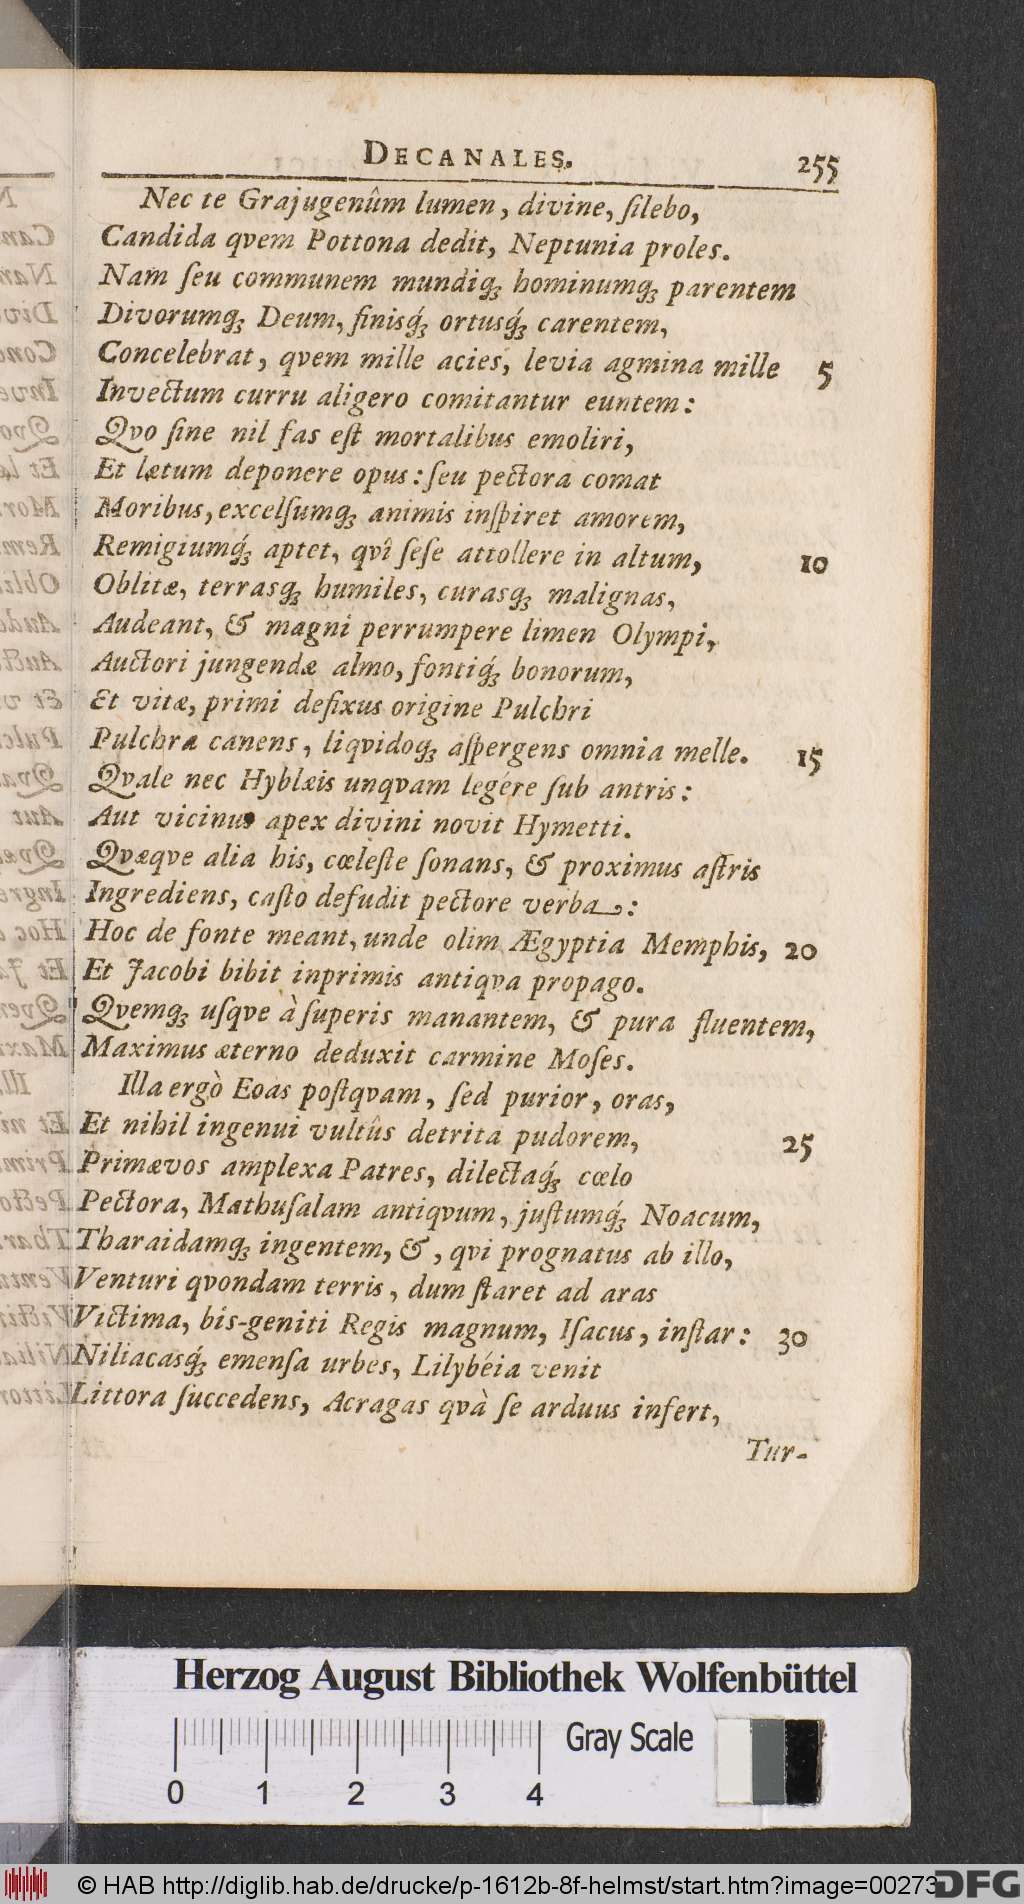 DECANALES. 255
Nec te Grajugenûm lumen, divine, ſilebo,
Candida qvem Pottona dedit, Neptunia proles.
Nam ſeu communem mundiq́; hominumq́; parentem
Divorumq́; Deum, finisq́; ortusq́; carentem,
Concelebrat, qvem mille acies, levia agmina mille 5
Invectum curru aligero comitantur euntem:
Qvo ſine nil fas eſt mortalibus emoliri,
Et lætum deponere opus: ſeu pectora comat
Moribus, excelſumq́; animis inſpiret amorem,
Remigiumq́; aptet, qvî ſeſe attollere in altum, 10
Oblitæ, terrasq́; humiles, curasq́; malignas,
Audeant, & magni perrumpere limen Olympi,
Auctori jungendæ almo, fontiq́; bonorum,
Et vitæ, primi defixus origine Pulchri
Pulchra canens, liqvidoq́; aſpergens omnia melle. 15
Qvale nec Hyblæis unqvam legére ſub antris:
Aut vicinus apex divini novit Hymetti.
Qvæqve alia his, cœleſte ſonans, & proximus aſtris
Ingrediens, caſto defudit pectore verba:
Hoc de fonte meant, unde olim Ægyptia Memphis, 20
Et Jacobi bibit inprimis antiqva propago.
Qvemq́; uſqve à ſuperis manantem, & pura fluentem,
Maximus æterno deduxit carmine Moſes.
Illa ergò Eoas poſtqvam, ſed purior, oras,
Et nihil ingenui vultûs detrita pudorem, 25
Primævos amplexa Patres, dilectaq́; cœlo
Pectora, Mathuſalam antiqvum, juſtumq́; Noacum,
Tharaidamq́; ingentem, &, qvi prognatus ab illo,
Venturi qvondam terris, dum ſtaret ad aras
Victima, bis-geniti Regis magnum, Iſacus, inſtar: 30
Niliacasq́; emenſa urbes, Lilybéia venit
Littora ſuccedens, Acragas qvà ſe arduus infert,
Tur-
Herzog August Bibliothek Wolfenbüttel
Gray Scale
0 1 2 3 4
© HAB http://diglib.hab.de/drucke/p-1612b-8f-helmst/start.htm?image=00273
DFG